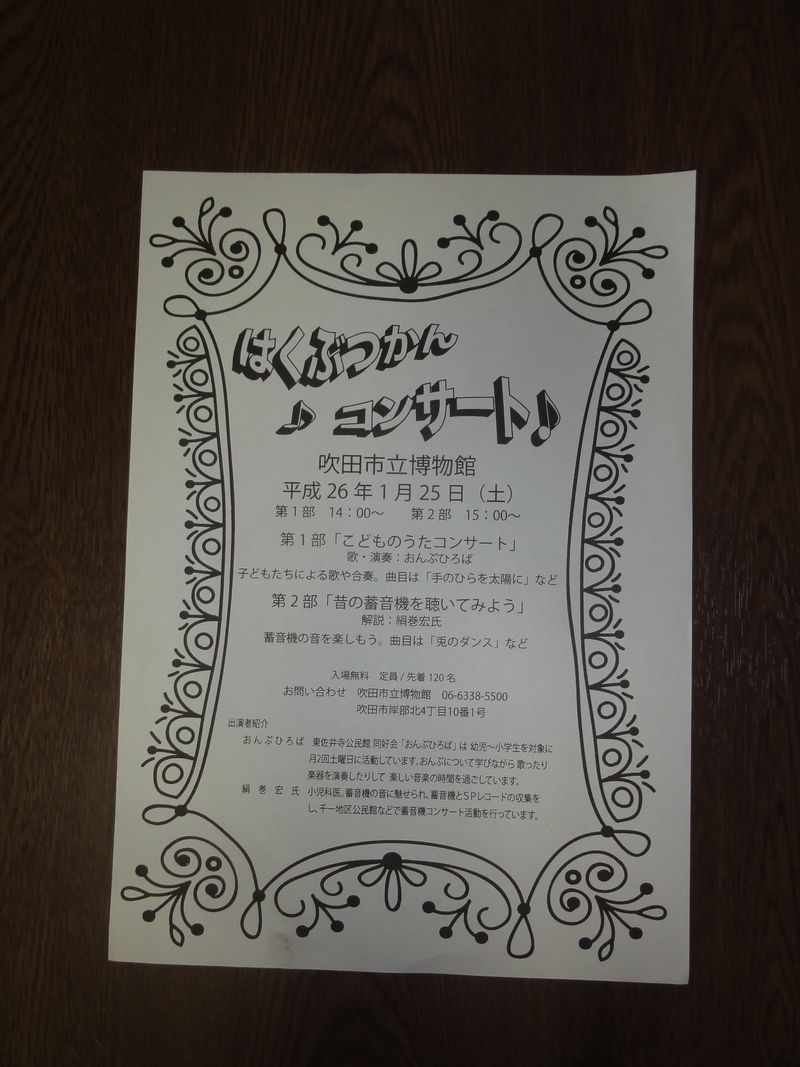 はくぶつかん
♪ コンサート♪
吹田市立博物館
平成26年1月25日（土）
第1部 14：00～ 第2部 15：00～
第1部「こどものうたコンサート」
歌・演奏：おんぷひろば
子どもたちによる歌や合奏。曲目は「手のひらを太陽に」など
第2部「昔の蓄音機を聴いてみよう」
解説：絹巻宏氏
蓄音機の音を楽しもう。曲目は「兎のダンス」など
入場無料 定員/先着120名
お問い合わせ 吹田市立博物館 06-6338-5500
吹田市岸部北4丁目10番1号
出演者紹介
おんぷひろば 東佐井寺公民館 同好会「おんぷひろば」は 幼児～小学生を対象に
月2回土曜日に活動しています。おんぷについて学びながら 歌ったり
楽器を演奏したりして 楽しい音楽の時間を過ごしています。
絹巻宏氏 小児科医。蓄音機の音に魅せられ、蓄音機とＳＰレコードの収集を
し、千一地区公民館などで蓄音機コンサート活動を行っています。